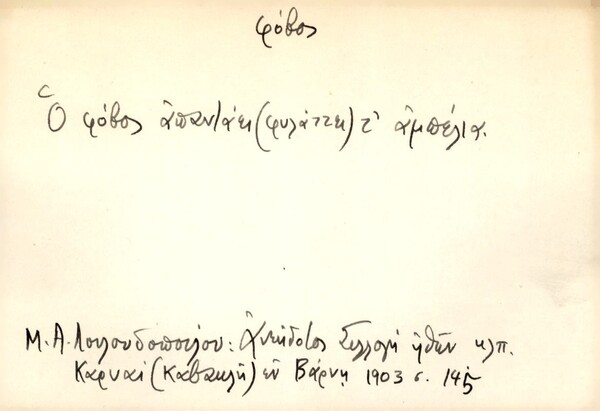 φόβος
Ὁ φόβος ἀπαντάει (φυλάττει) τ' ἀμπέλια.
Μ. Α. Λουλουδοπούλου: Ἀνέκδοτος Συλλογή ἠθῶν κλπ.
Καρυαί (Καβακλῆ) ἐν Βάρνῃ 1903 σ. 145